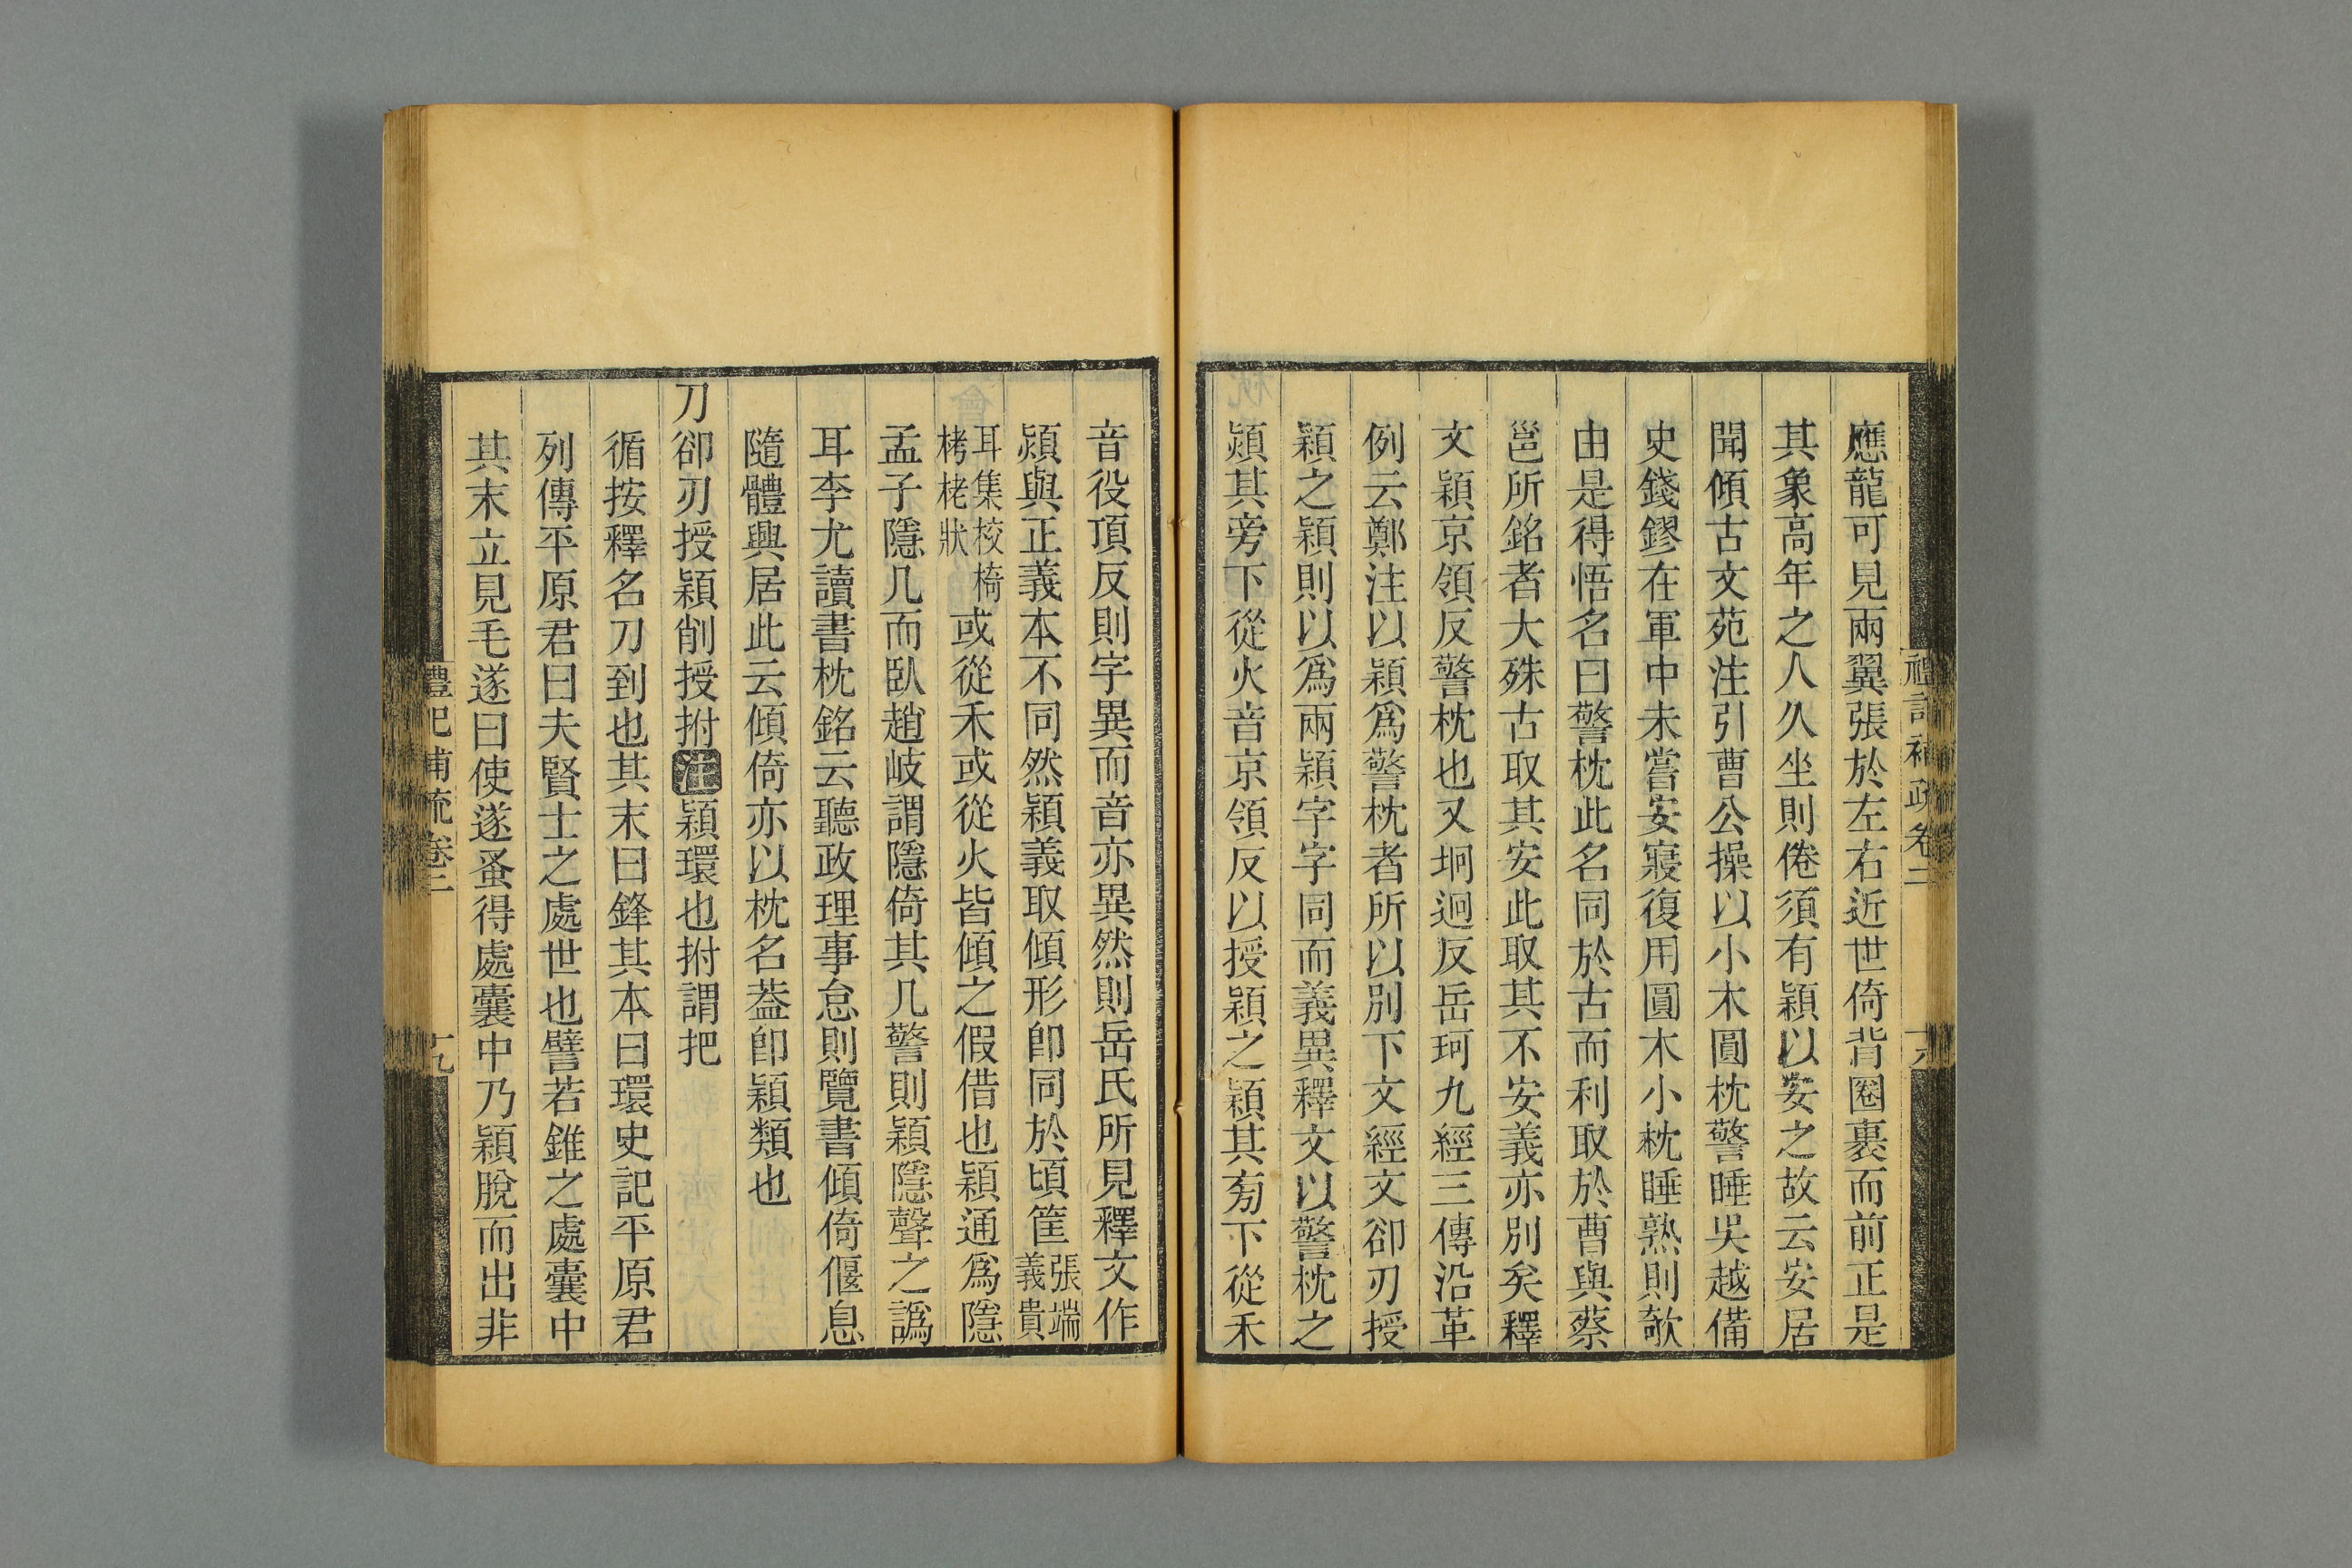 應龍可見兩翼張於左右近世倚背圈裹而前正是
其象高年之人久坐則倦須有穎以安之故云安居
聞傾古文苑注引曹公操以小木圓枕警睡吳越備
史錢鏐在軍中未嘗安寢復用圓木小枕睡熟則欹
由是得悟名曰警枕此名同於古而利取於曹與蔡
邕所銘者大殊古取其安此取其不安義亦別矣釋
文穎京領反警枕也又坰迥反岳珂九經三傳沿革
例云鄭注以穎爲警枕者所以別下文經文卻刃授
穎之穎則以爲兩穎字字同而義異釋文以警枕之
熲其旁下從火音京領反以授穎之穎其旁下從禾
音役頂反則字異而音亦異然則岳氏所見釋文作
熲與正義本不同然穎義取傾形卽同於頃筐張端義貴
耳集校椅栲栳狀或從禾或從火皆傾之假借也穎通爲隱
孟子隱几而臥趙岐謂隱倚其几警則穎隱聲之譌
耳李尤讀書枕銘云聽政理事怠則覽書傾倚偃息
隨體興居此云傾倚亦以枕名葢卽穎類也
刀卻刃授穎削授拊注穎環也拊謂把
循按釋名刀到也其末曰鋒其本曰環史記平原君
列傳平原君曰夫賢士之處世也譬若錐之處囊中
其末立見毛遂曰使遂蚤得處囊中乃穎脫而出非
禮記補疏卷二
禮記補疏卷二
十九